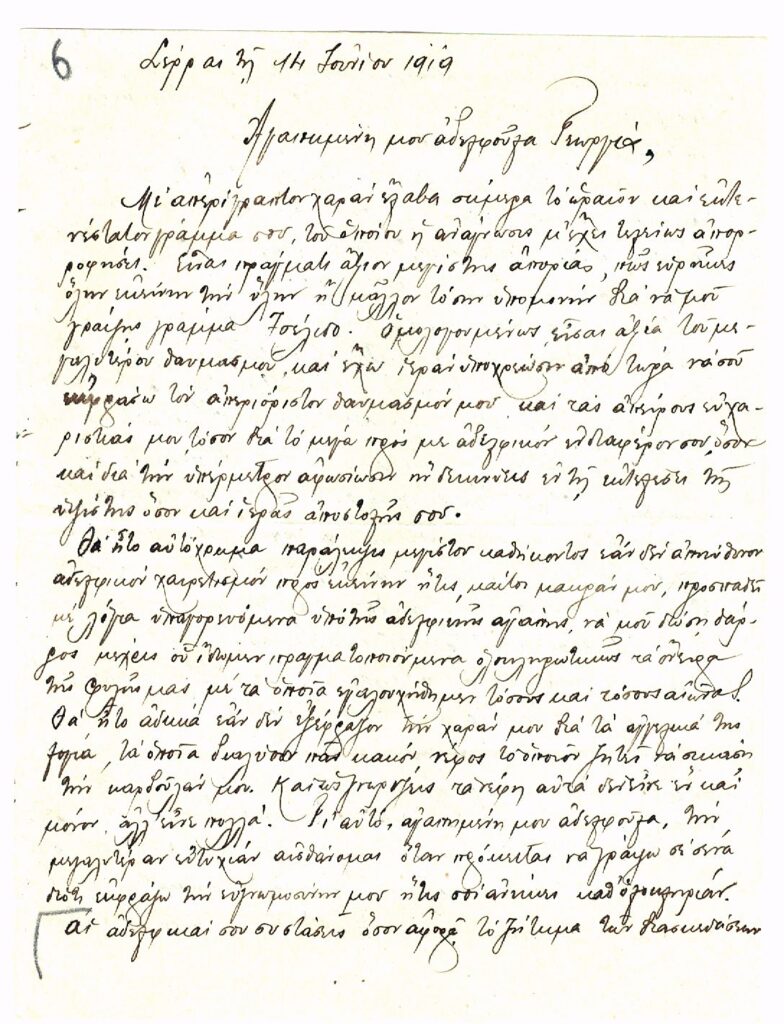 6
Σέρραι τῇ 14 Ἰουνίου 1919
Ἀγαπημένη μου ἀδελφοῦλα Γεωργία,
Μέ ἀπερίγραπτον χαράν ἔλαβα σήμερα τό ὡραῖον καί ἐκτε-
νέστατον γράμμα σου, τοῦ ὁποίου ἡ ἀνάγνωσις μ' ἔχει τελείως ἀπορ-
ροφήσει. Εἶναι πράγματι ἄξιον μεγίστης ἀπορίας, πῶς εὑρῆκες
ὅλην ἐκείνην τήν ὕλην ἤ μᾶλλον τόσην ὑπομονήν διά νά μοῦ
γράψῃς γράμμα 7σέλιδο. Ὁμολογουμένως εἶσαι ἀξία τοῦ με-
γαλυτέρου θαυμασμοῦ, καί ἔχω ἱεράν ὑποχρέωσιν ἀπό τώρα νά σοῦ
ἐκφράσω τόν ἀπεριόριστον θαυμασμόν μου καί τάς ἀπείρους εὐχα-
ριστίας μου, τόσον διά τό μέγα πρός με ἀδελφικόν ἐνδιαφέρον σου, ὅσον
καί διά τήν ὑπέρμετρον ἀφοσίωσιν ἥν δεικνύεις ἐν τῇ ἐκτελέσει τῆς
ὑψίστης ὅσον καί ἱερᾶς ἀποστολῆς σου.
Θά ἦτο αὐτόχρημα παράλειψις μεγίστου καθήκοντος ἐάν δέν ἀπηύθυνον
ἀδελφικόν χαιρετισμόν πρός ἐκείνην ἥτις, καίτοι μακράν μου, προσπαθεῖ
μέ λόγια ὑπαγορευόμενα ὑπό τῆς ἀδελφικῆς ἀγάπης, νά μοῦ δώσῃ θάρ-
ρος μέχρις οὗ ἴδωμεν πραγματοποιούμενα ὁλοκληρωτικῶς τά ὄνειρα
τῆς φυλῆς μας μέ τά ὁποῖα ἐγαλουχήθημεν τόσους καί τόσους αἰῶνας.
Θά ἦτο ἀδικία ἐάν δέν ἐξέφραζον τήν χαράν μου διά τά ἀγγελικά της
λόγια, τά ὁποῖα διαλύουν πᾶν κακόν νέφος τό ὁποῖον ζητεῖ νά σκιάσῃ
τήν καρδούλαν μου. Καί ὡς γνωρίζεις τά νέφη αὐτά δέν εἶνε ἕν καί
μόνον ἀλλ' εἶνε πολλά. Γι' αὐτό, ἀγαπημένη μου ἀδελφοῦλα, τήν
μεγαλυτέραν εὐτυχίαν αἰσθάνομαι ὅταν πρόκειται νά γράψω σέ σένα
διότι ἐκφράζω τήν εὐγνωμοσύνην μου ἥτις σοί ἀνήκει καθ' ὁλοκληρίαν.
Αἱ ἀδελφικαί σου συστάσεις ὅσον ἀφορᾷ τό ζήτημα τῶν διασκεδάσεων